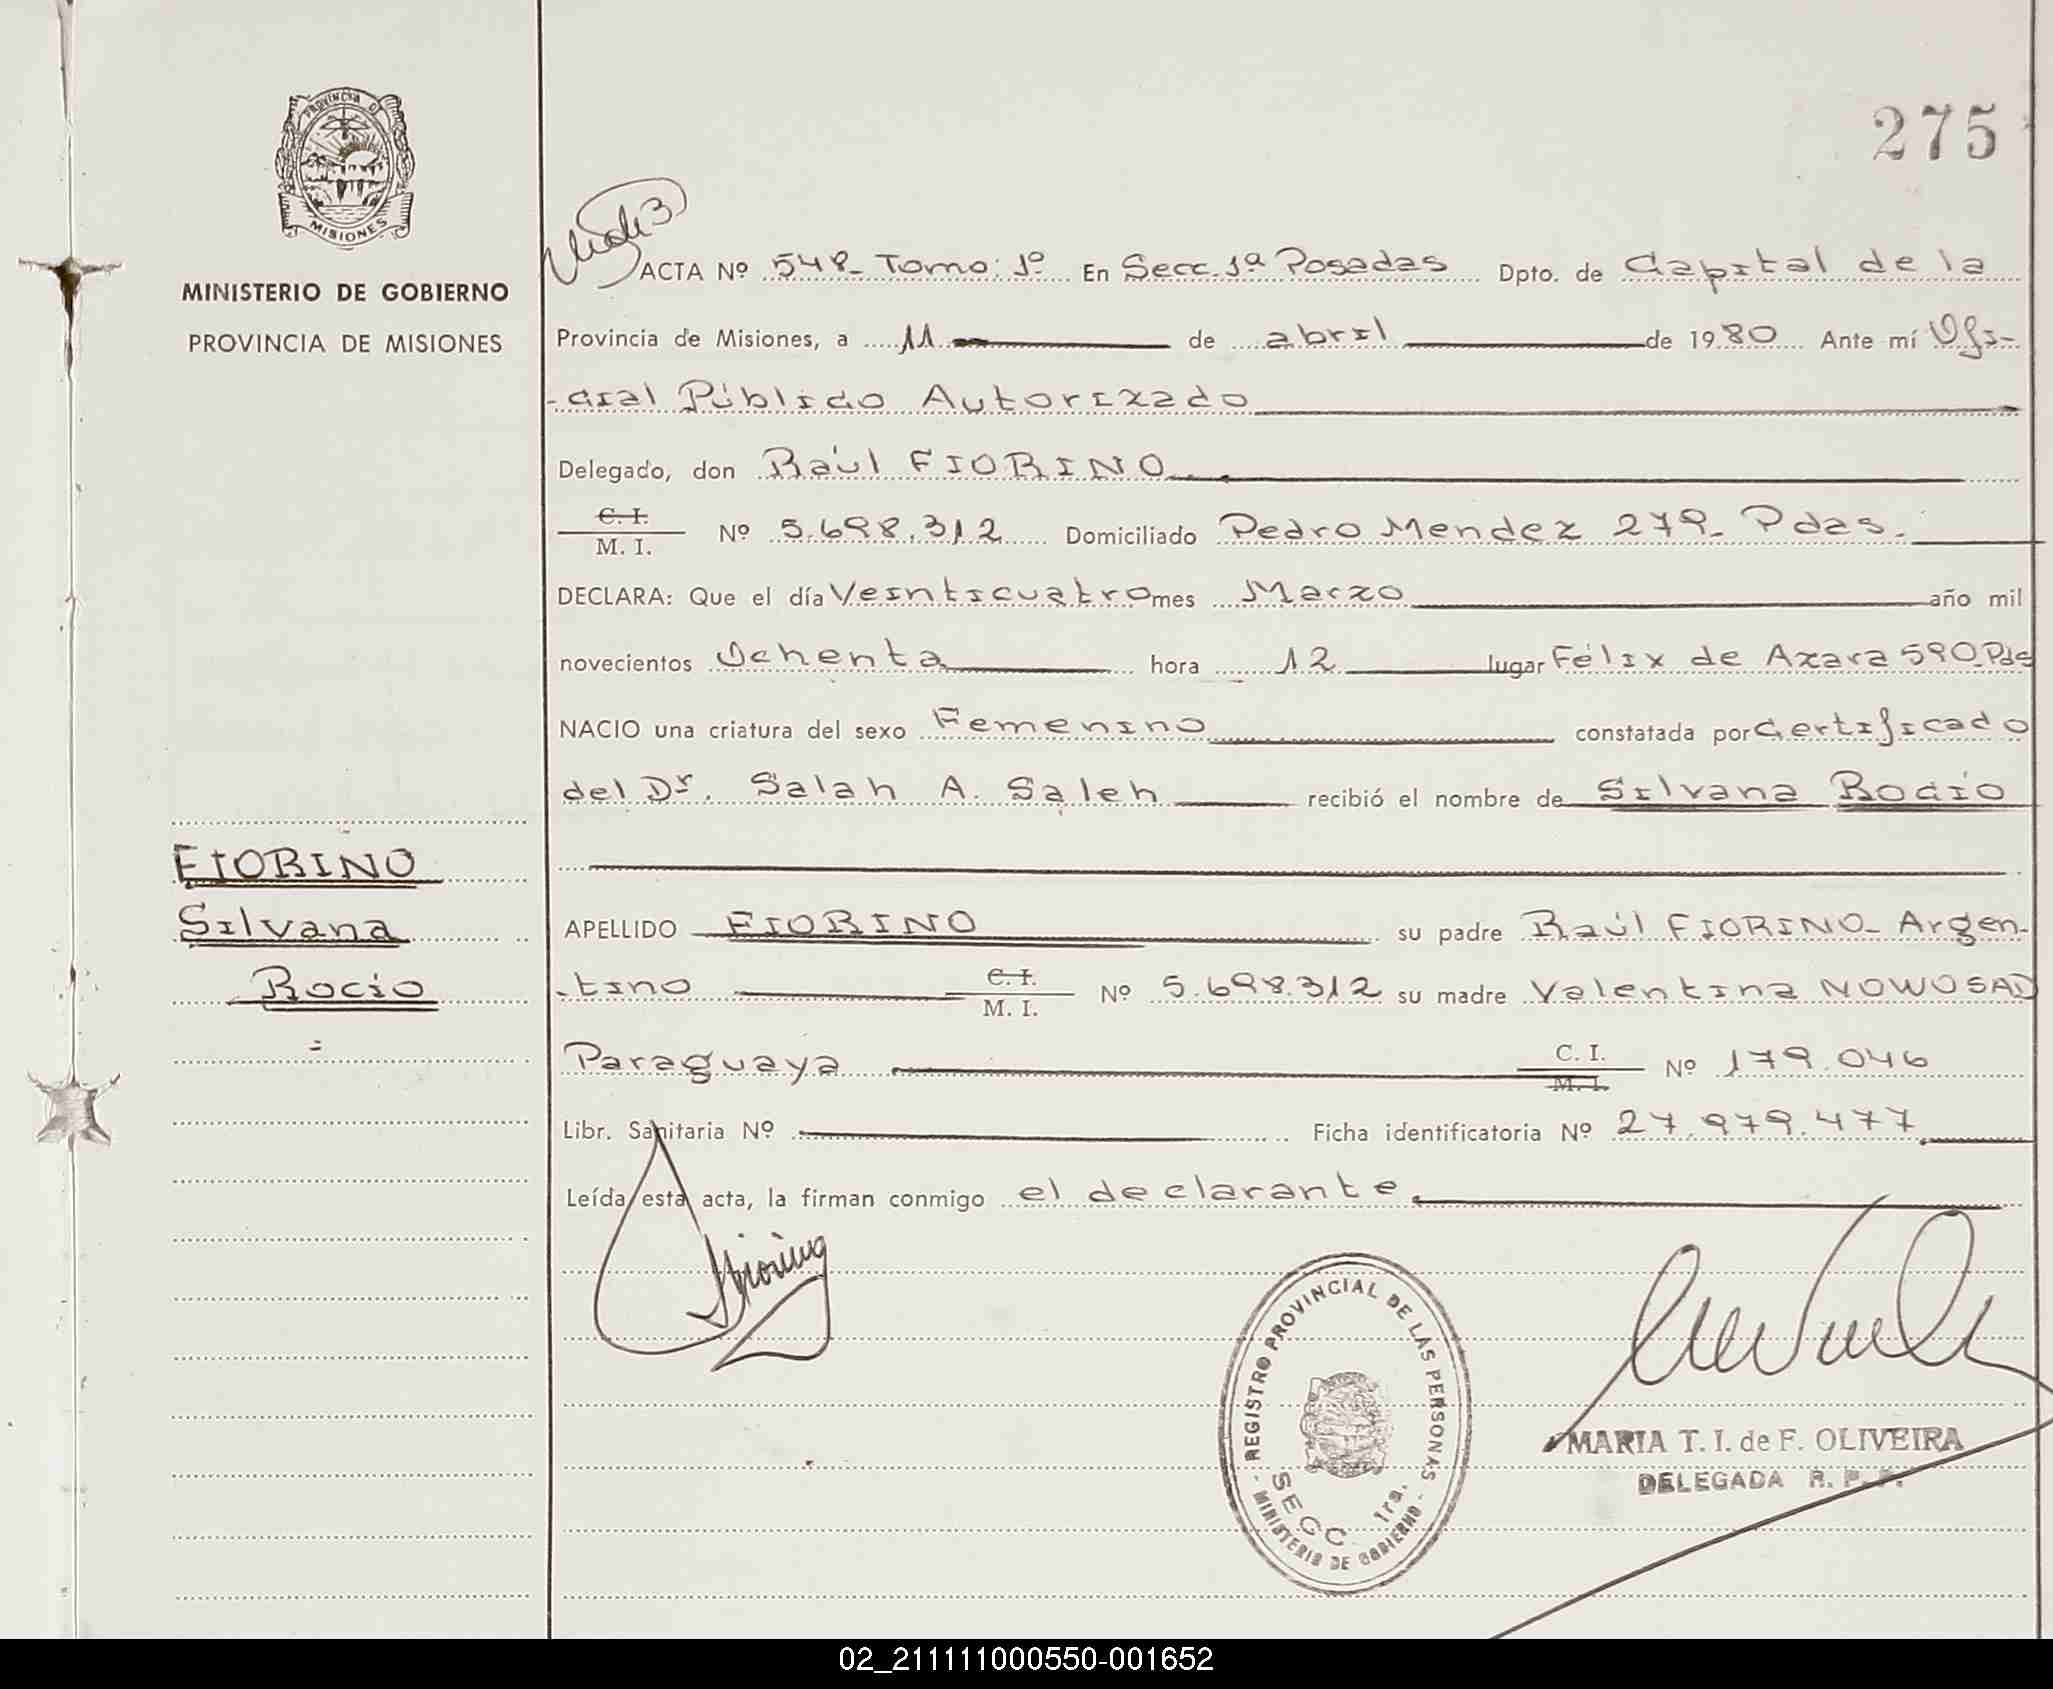 PROVINCIA D
MISIONES
MINISTERIO DE GOBIERNO
PROVINCIA DE MISIONES
275
ACTA Nº 548- Tomo: 1º En Secc. 1ª Posadas Dpto. de Capital de la
Provincia de Misiones, a 11 de abril de 1980 Ante mí Ofi-
-cial Público Autorizado
Delegado, don Raúl FIORINO
C. I.
M. I. Nº 5.698.312 Domiciliado Pedro Mendez 279- Pdas.
DECLARA: Que el día Veinticuatro mes Marzo año mil
novecientos Ochenta hora 12 lugar Félix de Azara 590 Pdas
NACIO una criatura del sexo Femenino constatada por Certificado
del Dr. Salah A. Saleh recibió el nombre de Silvana Rocío
FIORINO
Silvana
Rocío
=
APELLIDO FIORINO su padre Raúl FIORINO- Argen-
-tino C. I. M. I. Nº 5.698.312 su madre Valentina NOWOSAD
Paraguaya C. I. M. I. Nº 179.046
Libr. Sanitaria Nº Ficha identificatoria Nº 27.979.477
Leída esta acta, la firman conmigo el declarante.
REGISTRO PROVINCIAL DE LAS PERSONAS
- MINISTERIO DE GOBIERNO -
SECC 1ra.
MARIA T. I. de F. OLIVEIRA
DELEGADA R. P. P.
02_211111000550-001652